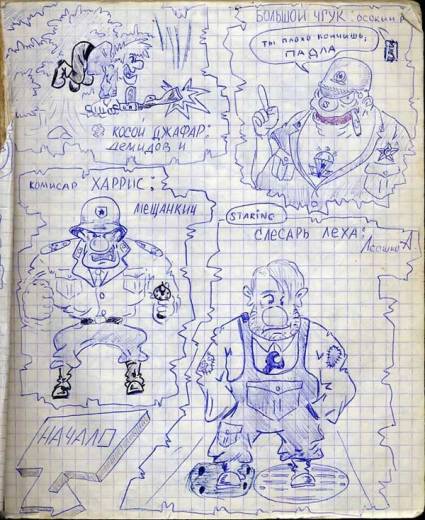 БОЛЬШОЙ ЧГУК: ОСОКИН А
ТЫ ПЛОХО КОНЧИШЬ,
ПАДЛА
КОСОЙ ДЖАФАР:
ДЕМИДОВ И
КОМИСАР ХАРРИС:
МЕЩАНКИЧ
STARING
СЛЕСАРЬ ЛЕХА:
НАЧАЛО